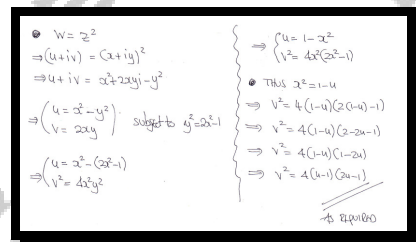 • W = z²
⇒ (u+iv) = (x+iy)²
⇒ u+iv = x²+2xyi-y²
⇒ { u = x²-y²
v = 2xy } subject to y²=2x²-1
⇒ { u = x²-(2x²-1)
v² = 4x²y²
⇒ { u = 1-x²
v² = 4x²(2x²-1)
• THUS x²=1-u
⇒ v² = 4(1-u)(2(1-u)-1)
⇒ v² = 4(1-u)(2-2u-1)
⇒ v² = 4(1-u)(1-2u)
⇒ v² = 4(u-1)(2u-1)
As REQUIRED